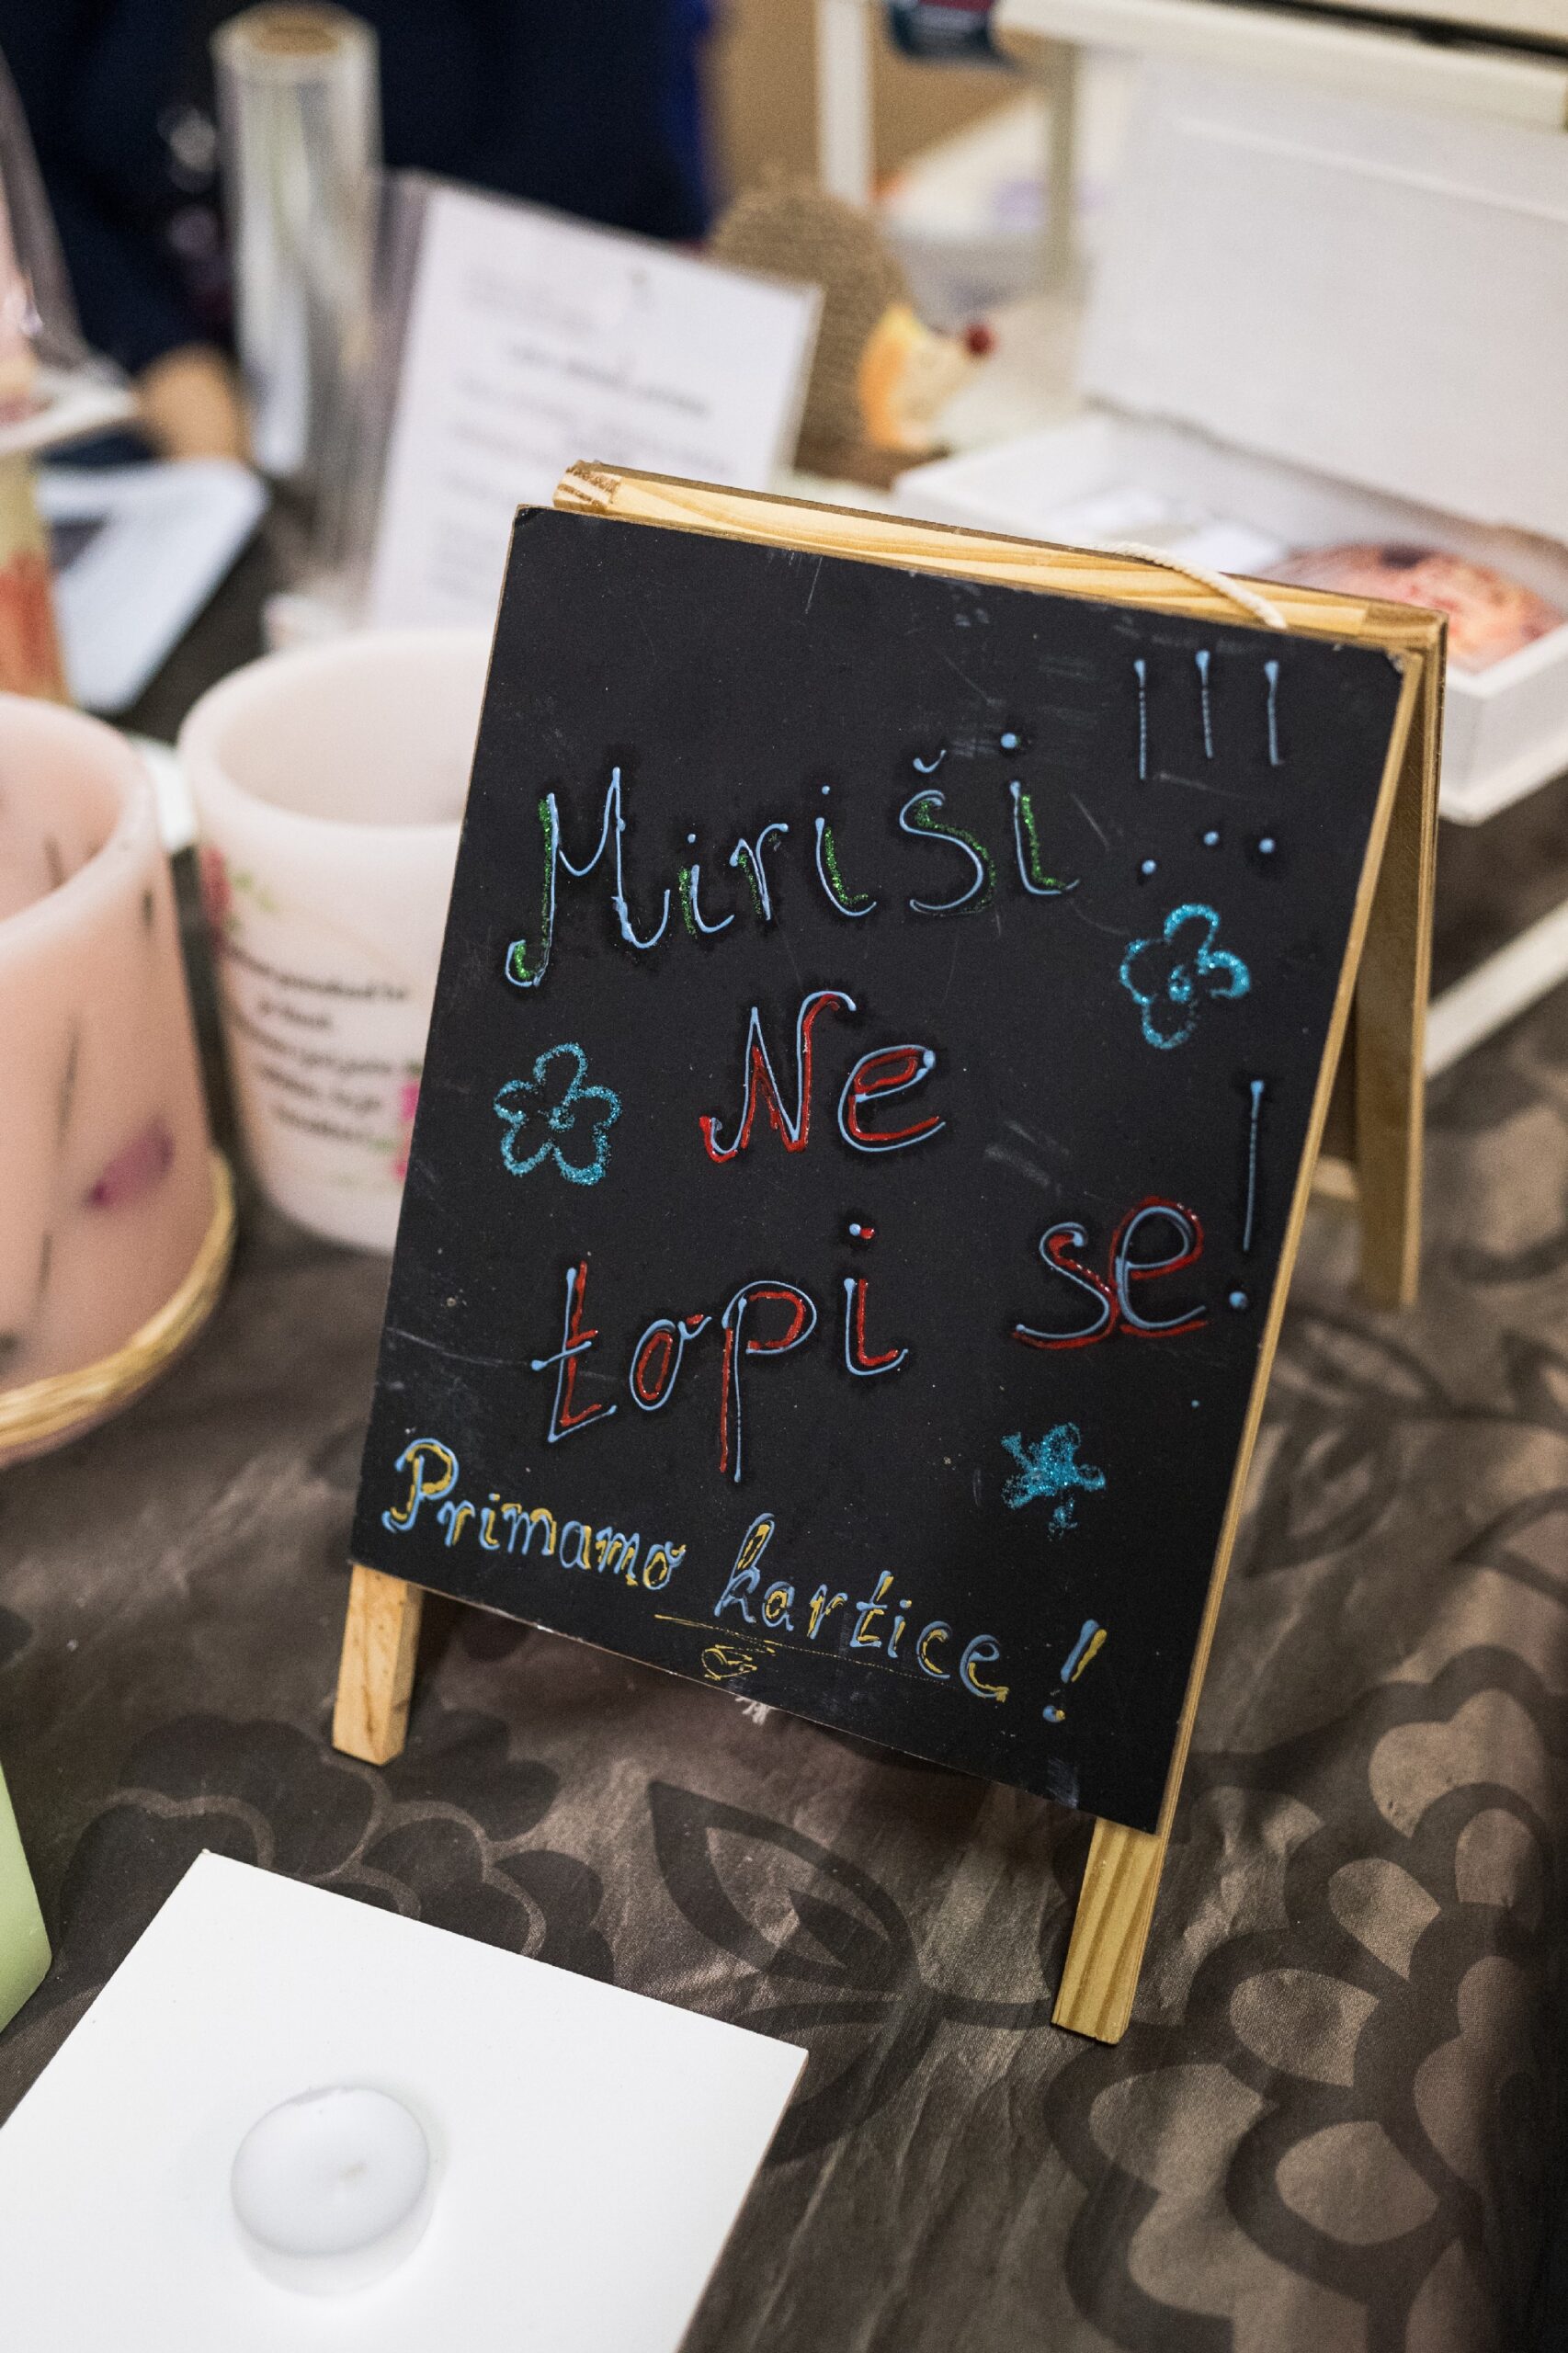 Miriši!!!
Ne
topi se!
Primamo kartice!